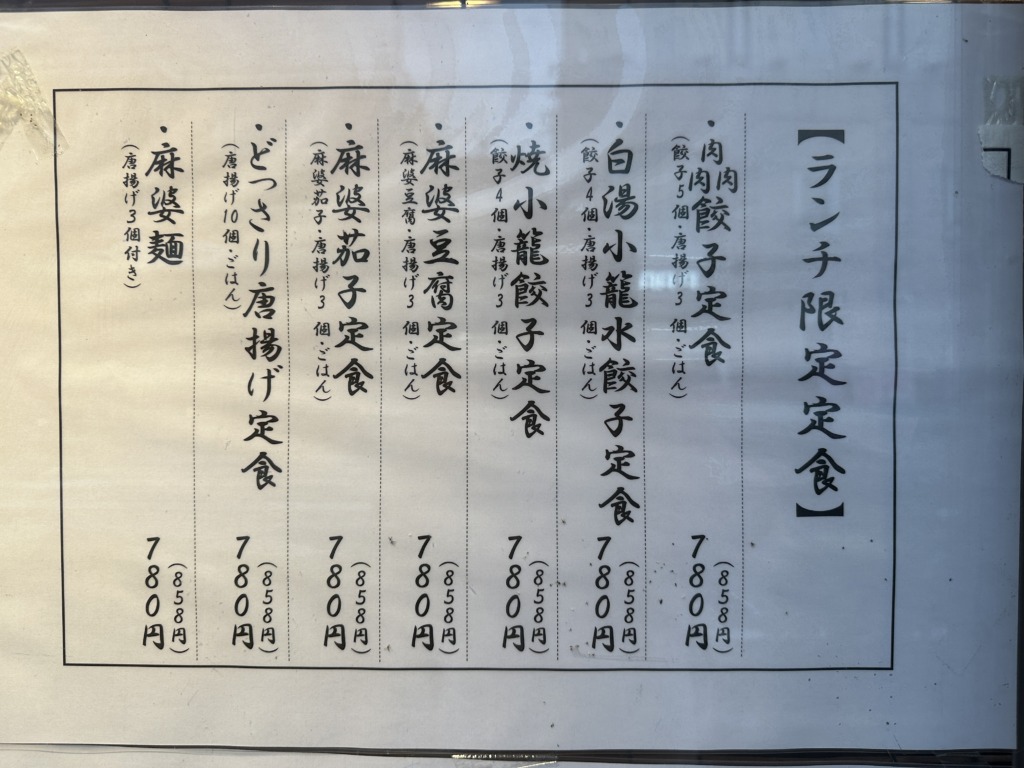 【ランチ限定定食】
・肉肉肉餃子定食
(餃子5個・唐揚げ3個・ごはん)
(858円)
780円
・白湯小籠水餃子定食
(餃子4個・唐揚げ3個・ごはん)
(858円)
780円
・焼小籠餃子定食
(餃子4個・唐揚げ3個・ごはん)
(858円)
780円
・麻婆豆腐定食
(麻婆豆腐・唐揚げ3個・ごはん)
(858円)
780円
・麻婆茄子定食
(麻婆茄子・唐揚げ3個・ごはん)
(858円)
780円
・どっさり唐揚げ定食
(唐揚げ10個・ごはん)
(858円)
780円
・麻婆麺
(唐揚げ3個付き)
(858円)
780円